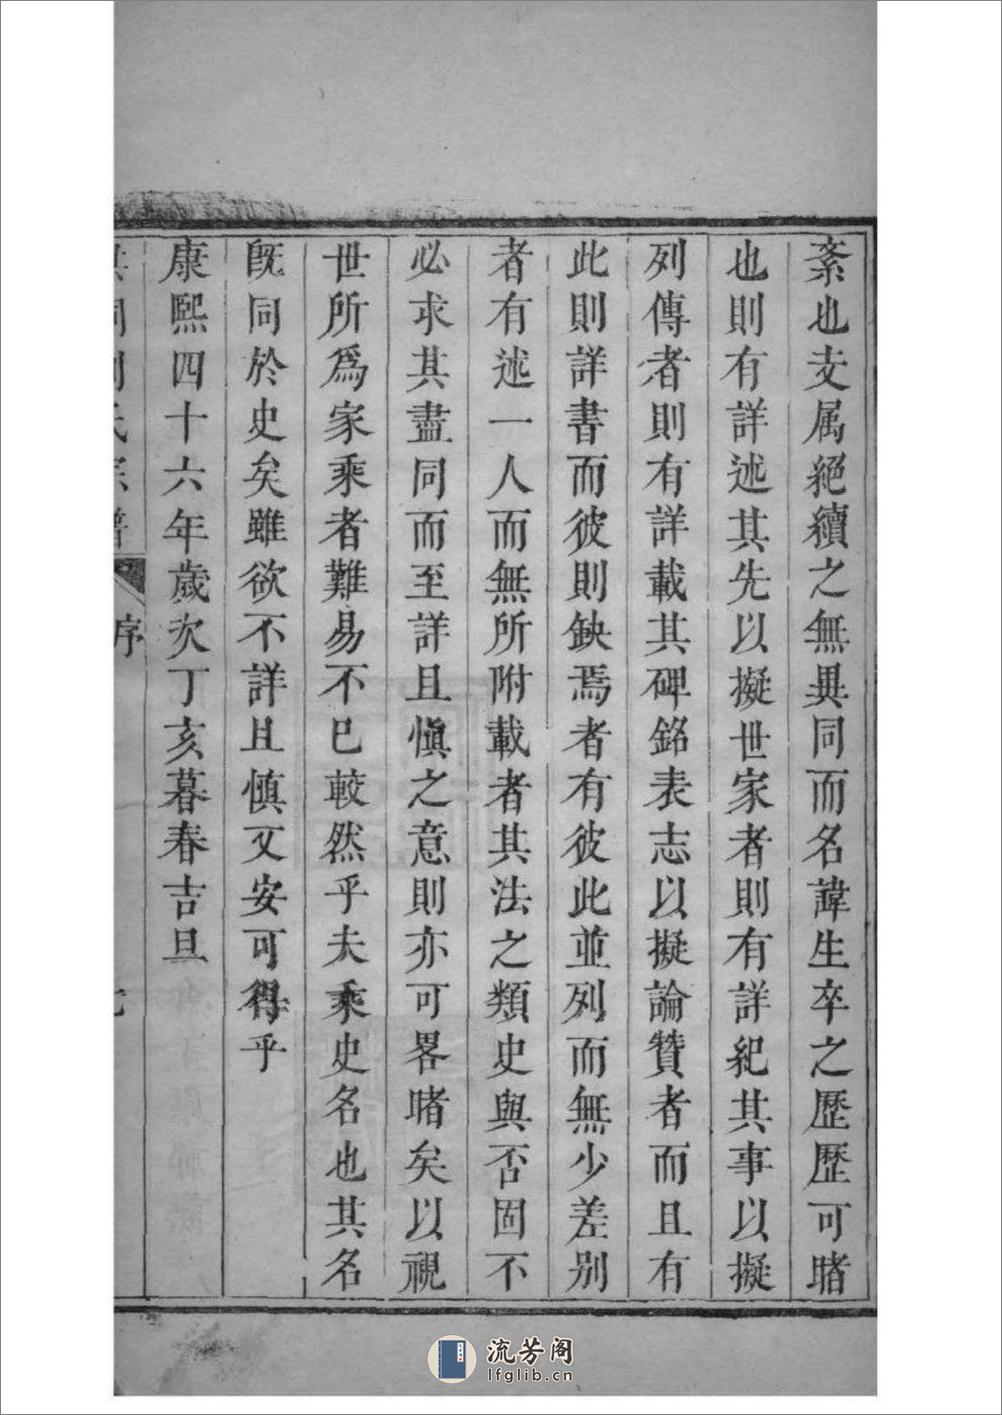 紊也支属絕續之無異同而名諱生卒之歷歷可睹
也則有詳述其先以擬世家者則有詳紀其事以擬
列傳者則有詳載其碑銘表志以擬論贊者而且有
此則詳書而彼則缺焉者有彼此並列而無少差别
者有述一人而無所附載者其法之類史與否固不
必求其盡同而至詳且愼之意則亦可畧睹矣以視
世所爲家乘者難易不已較然乎夫乘史名也其名
旣同於史矣雖欲不詳且慎又安可得乎
康熙四十六年歲次丁亥暮春吉旦
洪洞劉氏宗譜 序
流芳阁
lfglib.cn